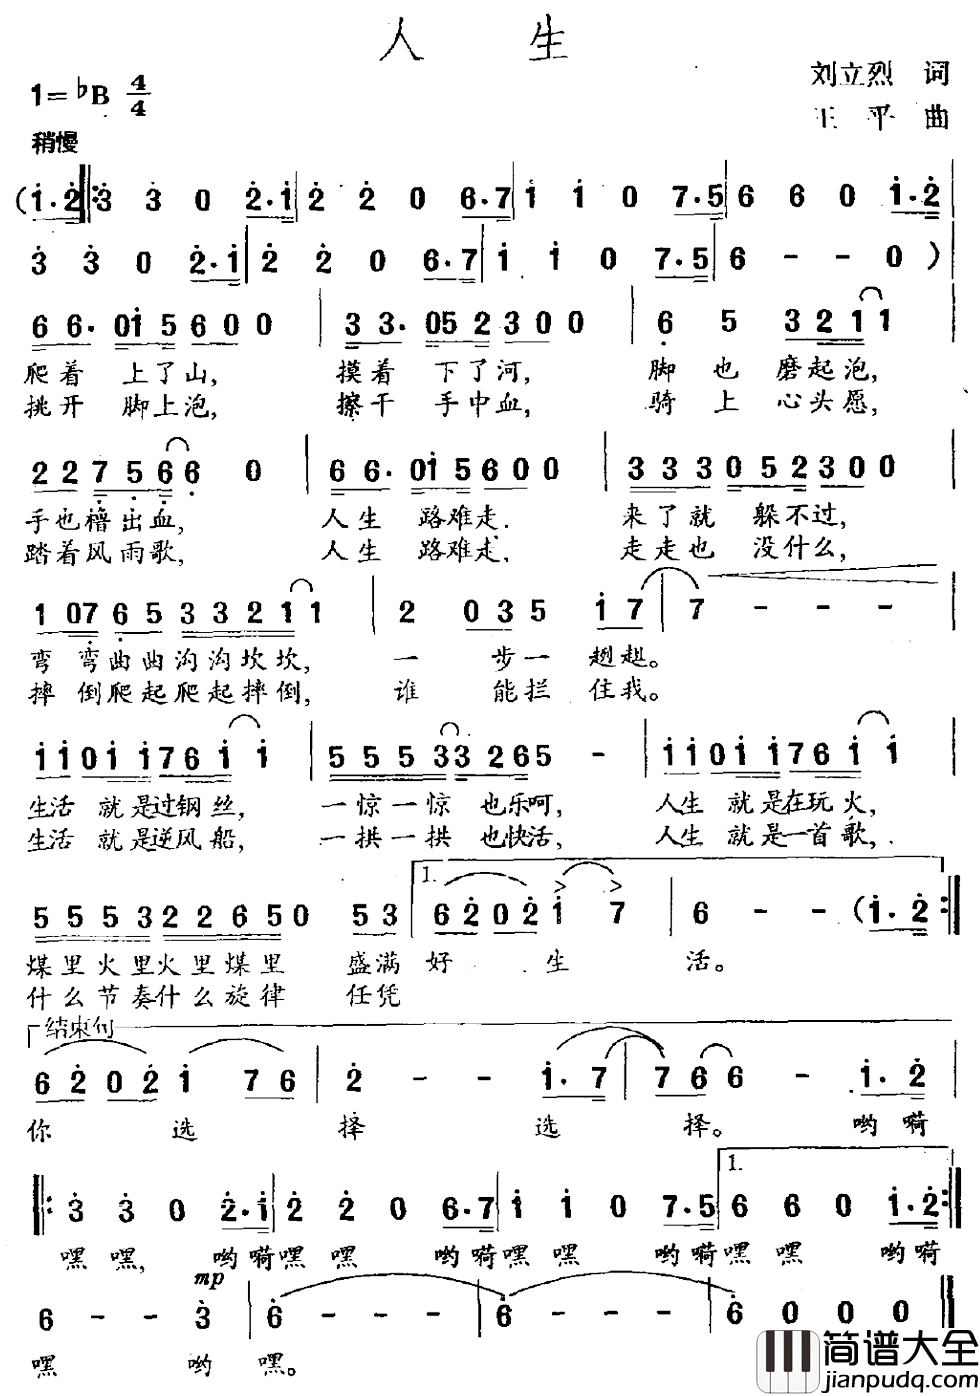 人 生
1=♭B 4/4
刘立烈 词
王 平 曲
稍慢
(1·2 3 3 0 2·1 2 2 0 6·7 1 1 0 7·5 6 6 0 1·2
3 3 0 2·1 2 2 0 6·7 1 1 0 7·5 6 - - 0 )
6 6· 01 5 6 0 0 3 3· 05 2 3 0 0 6 5 3 2 1 1
爬着 上了山, 摸着 下了河, 脚 也 磨起泡,
挑开 脚上泡, 擦干 手中血, 骑 上 心头愿,
2 2 7 5 6 6 0 6 6· 01 5 6 0 0 3 3 3 0 5 2 3 0 0
手也 出血, 人生 路难走. 来了就 躲不过,
踏着风雨歌, 人生 路难走, 走走也 没什么,
1 07 6 5 3 3 2 1 1 2 0 3 5 1 7 7 - - -
弯 弯曲曲沟沟坎坎, 一 步一 趔趄。
摔 倒爬起爬起摔倒, 谁 能拦 住我。
1 1 0 1 1 7 6 1 1 5 5 5 3 3 2 6 5 - 1 1 0 1 1 7 6 1 1
生活 就是过钢丝, 一惊一惊 也乐呵, 人生 就是在玩火,
生活 就是逆风船, 一拱一拱 也快活, 人生 就是一首歌,
1.
5 5 5 3 2 2 6 5 0 5 3 6 2 0 2 1 7 6 - - (1·2
煤里火里火里煤里 盛满 好 生 活。
什么节奏什么旋律 任凭
结束句
6 2 0 2 1 7 6 2 - - 1·7 7 6 6 - 1·2
你 选 择 选 择。 哟嗬
1.
3 3 0 2·1 2 2 0 6·7 1 1 0 7·5 6 6 0 1·2
嘿嘿, 哟嗬嘿嘿 哟嗬嘿嘿 哟嗬嘿嘿 哟嗬
mp
6 - - 3 6 - - - 6 - - - 6 0 0 0
嘿 哟 嘿。
简谱大全
jianpudq.com